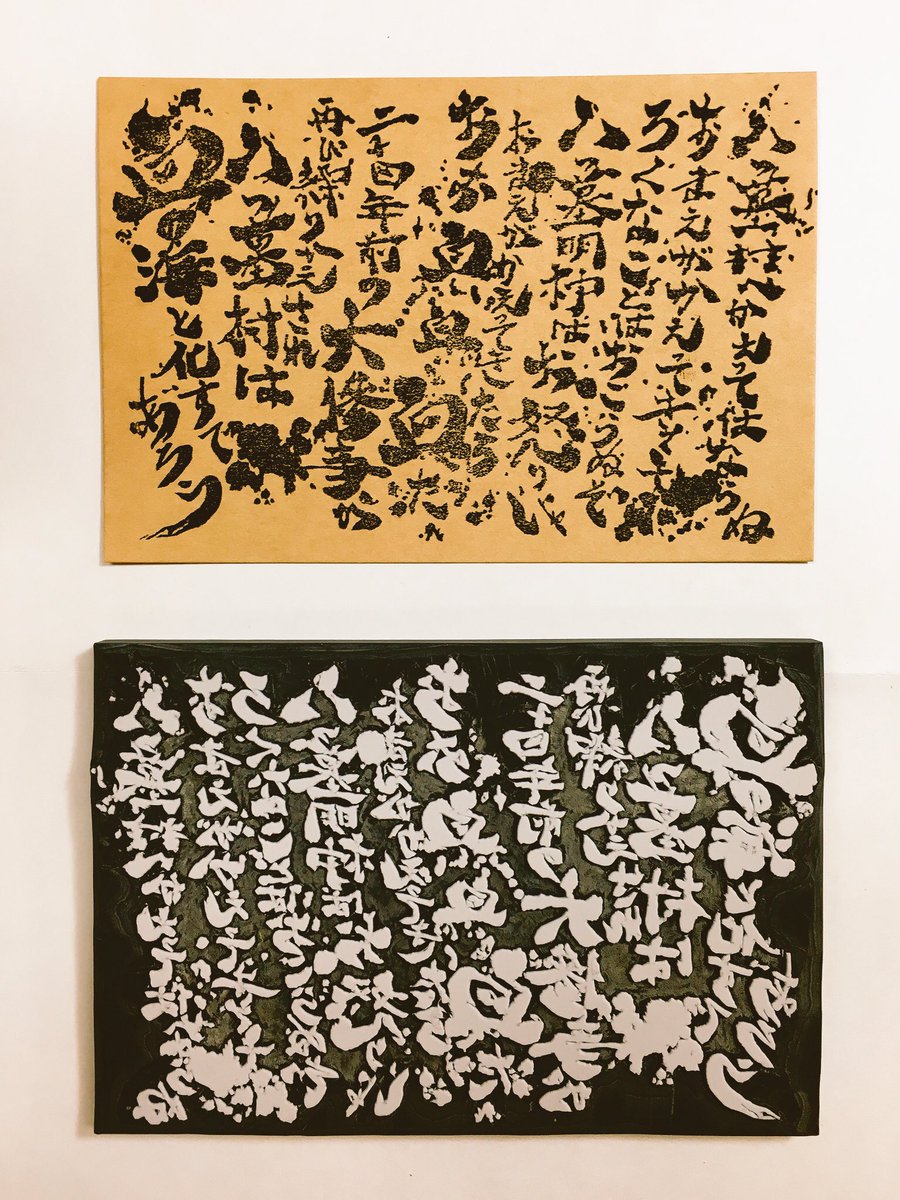 八つ墓村へかえってはならぬ
おまえがかえってきても
ろくなことはおこらぬぞ
八つ墓明神はお怒りじゃ
おまえがかえってきたら
おお血血血だ
二十四年前の大惨事が
再び繰りかえされ
八つ墓村は
血の海と化すで
あろう